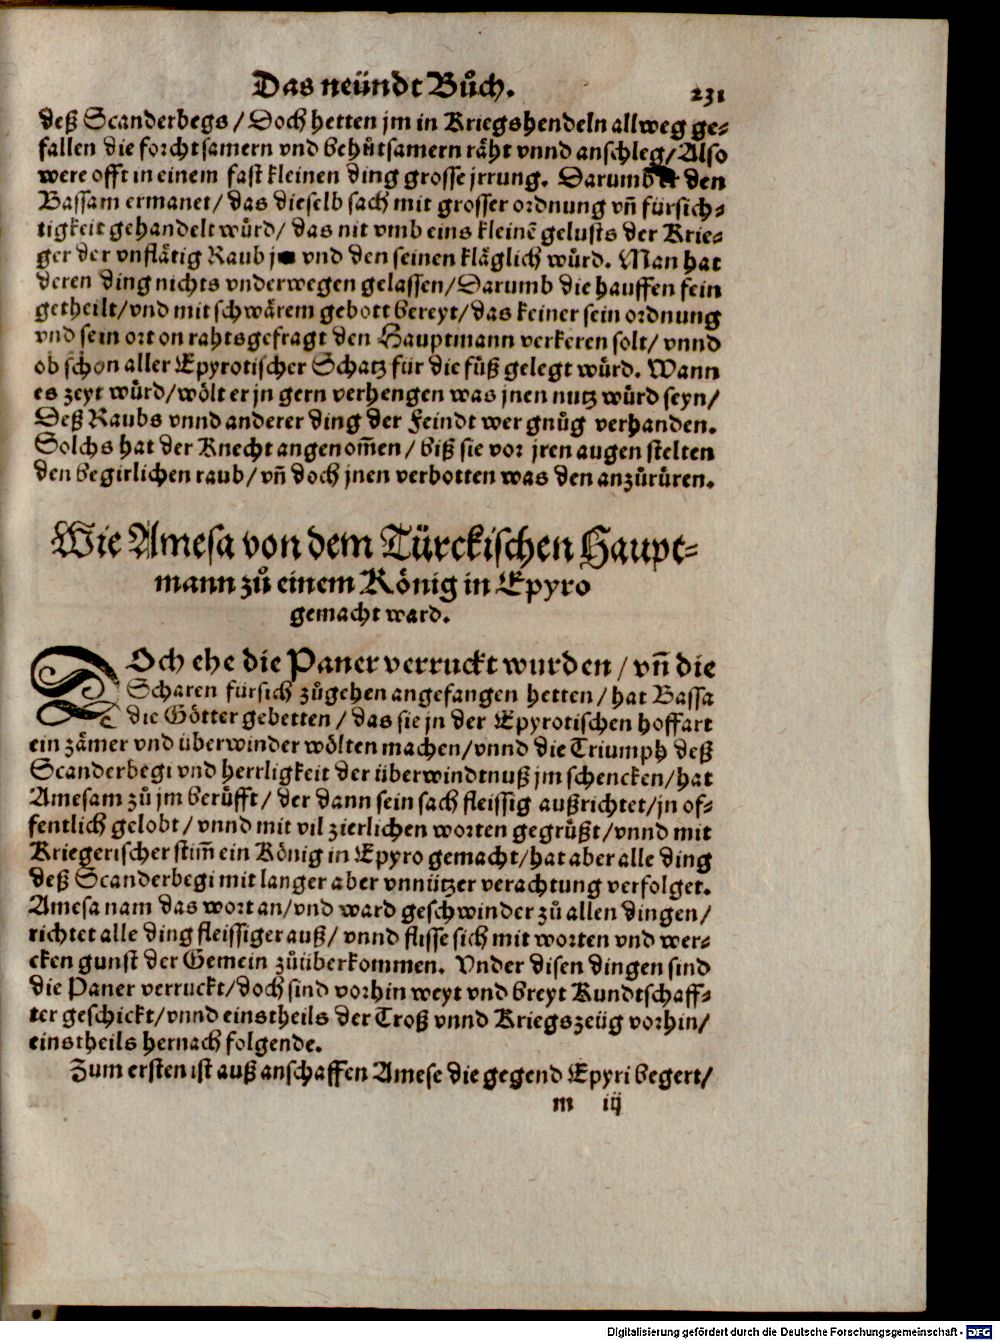 Das neündt Bůch. 231
deß Scanderbegs / Doch hetten jm in Kriegshendeln allweg ge-
fallen die forchtsamern vnd behůtsamern räht vnnd anschleg / Also
were offt in einem fast kleinen ding grosse jrrung. Darumb er den
Bassam ermanet / das dieselb sach mit grosser ordnung vñ fürsich-
tigkeit gehandelt würd / das nit vmb eins kleinẽ gelusts der Krie-
ger der vnflätig Raub jm vnd den seinen kläglich würd. Man hat
deren ding nichts vnderwegen gelassen / Darumb die hauffen fein
getheilt / vnd mit schwärem gebott bereyt / das keiner sein ordnung
vnd sein ort on rahtsgefragt den Hauptmann verkeren solt / vnnd
ob schon aller Epyrotischer Schatz für die füß gelegt würd. Wann
es zeyt würd / wölt er jn gern verhengen was jnen nutz würd seyn /
Deß Raubs vnnd anderer ding der Feindt wer gnůg verhanden.
Solchs hat der Knecht angenom̃en / biß sie vor jren augen stelten
den begirlichen raub / vñ doch jnen verbotten was den anzůrüren.
Wie Amesa von dem Türckischen Haupt-
mann zů einem König in Epyro
gemacht ward.
DOch ehe die Paner verruckt wurden / vñ die
Scharen fürsich zůgehen angefangen hetten / hat Bassa
die Götter gebetten / das sie jn der Epyrotischen hoffart
ein zämer vnd überwinder wölten machen / vnnd die Triumph deß
Scanderbegi vnd herrligkeit der überwindtnuß jm schencken / hat
Amesam zů jm berůfft / der dann sein sach fleissig außrichtet / jn of-
fentlich gelobt / vnnd mit vil zierlichen worten gegrüßt / vnnd mit
Kriegerischer stim̃ ein König in Epyro gemacht / hat aber alle ding
deß Scanderbegi mit langer aber vnnützer verachtung verfolget.
Amesa nam das wort an / vnd ward geschwinder zů allen dingen /
richtet alle ding fleissiger auß / vnnd flisse sich mit worten vnd wer-
cken gunst der Gemein zůüberkommen. Vnder disen dingen sind
die Paner verruckt / doch sind vorhin weyt vnd breyt Kundtschaff-
ter geschickt / vnnd einstheils der Troß vnnd Kriegszeüg vorhin /
einstheils hernach folgende.
Zum ersten ist auß anschaffen Amese die gegend Epyri begert /
m iij
Digitalisierung gefördert durch die Deutsche Forschungsgemeinschaft - DFG